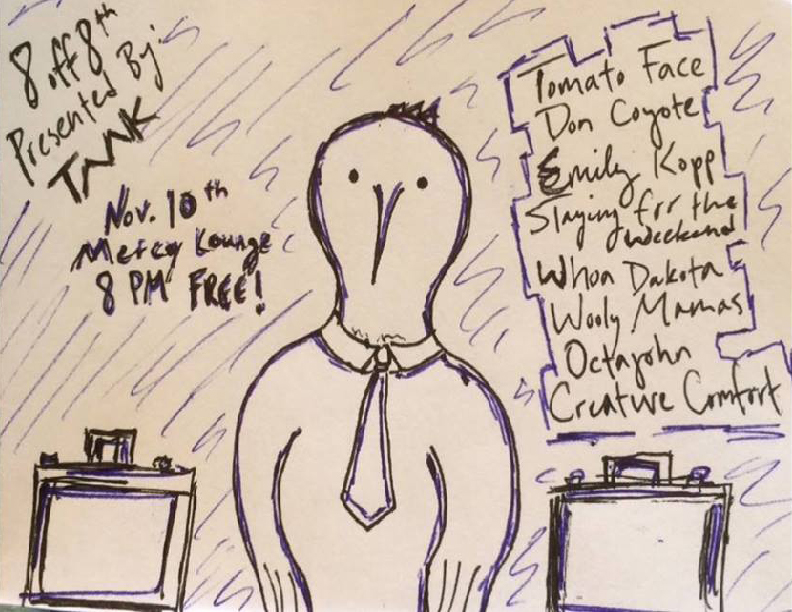 8 off 8th
Presented By:
TANK
Nov. 10th
Mercy Lounge
8 PM FREE!
Tomato Face
Don Coyote
Emily Kopp
Slaying for the
weekend
Whoa Dakota
Wooly Mamas
Octajohn
Creature Comfort